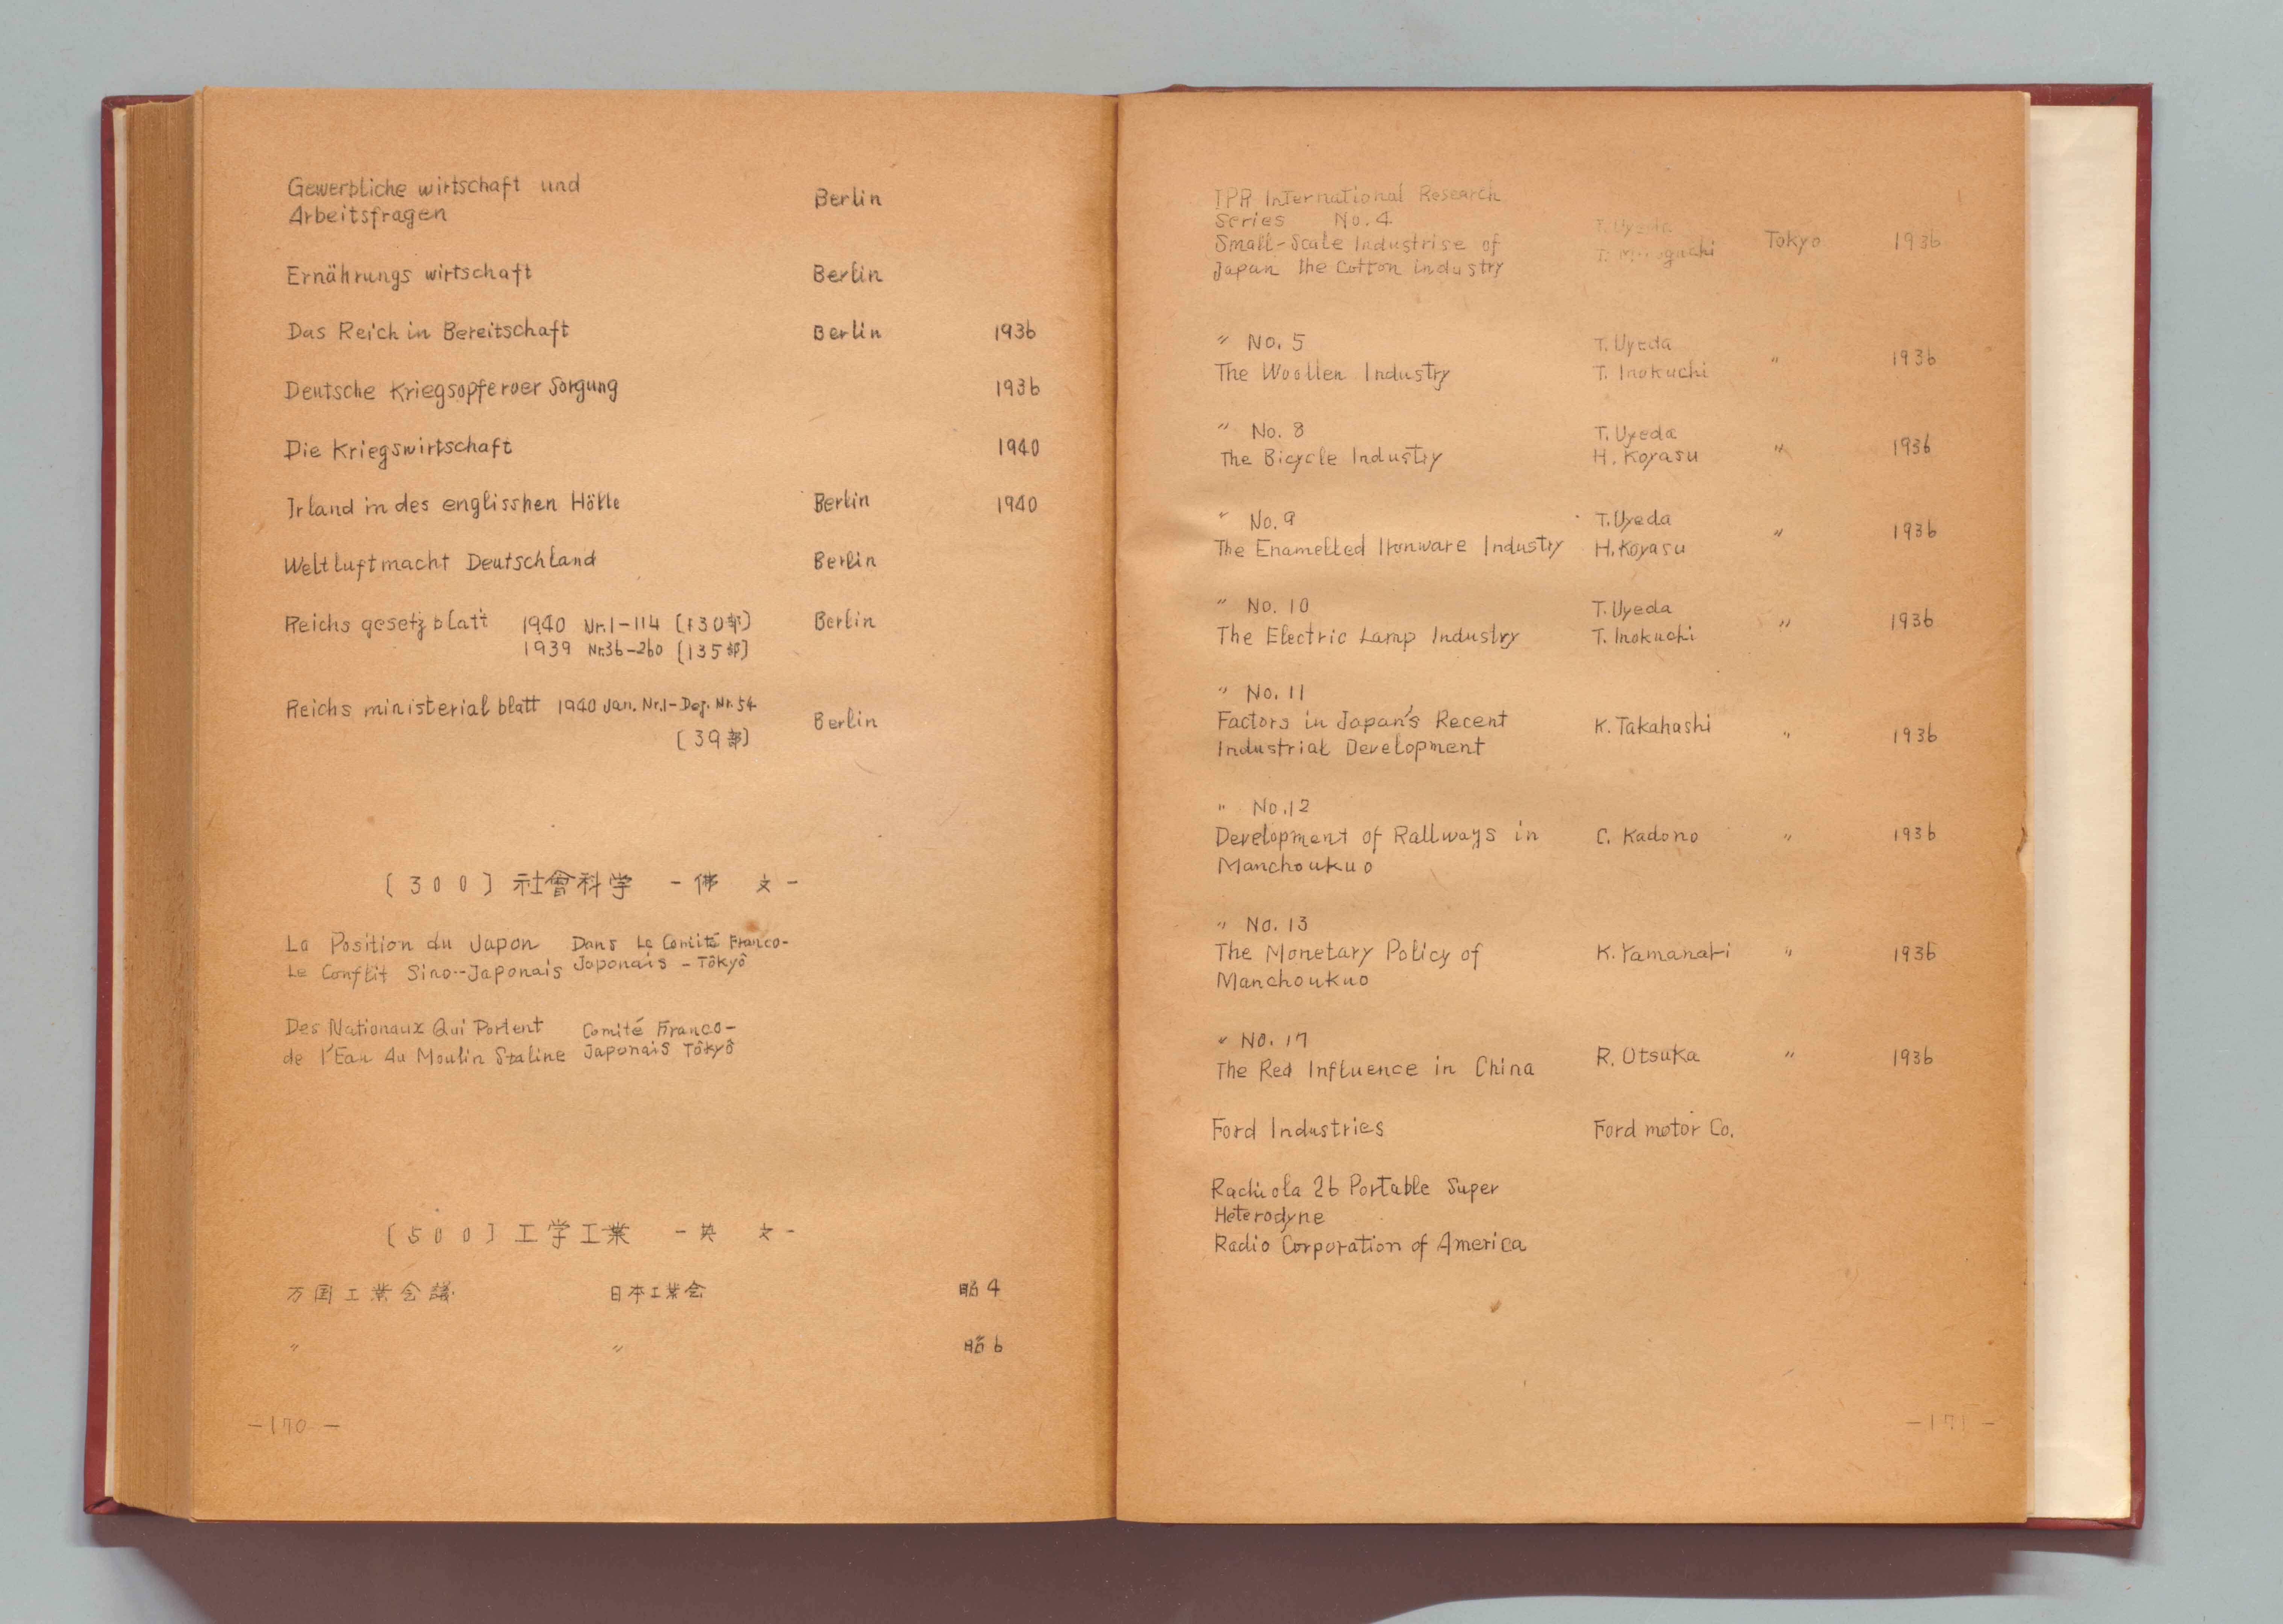 Gewerbliche wirtschaft und
Arbeitsfragen Berlin
Ernährungs wirtschaft Berlin
Das Reich in Bereitschaft Berlin 1936
Deutsche Kriegsopferver Sorgung 1936
Die Kriegswirtschaft 1940
Irland in des englisshen Hölle Berlin 1940
Weltluftmacht Deutschland Berlin
Reichs gesetz blatt 1940 Nr.1-114 〔130部〕 Berlin
1939 Nr.36-260 〔135部〕
Reichs ministerial blatt 1940 Jan. Nr.1-Dez. Nr.54
〔39部〕 Berlin
〔300〕社會科学 -佛 文-
La Position du Japon Dans Le Comité Franco-
Le Conflit Sino--Japonais Japonais - Tôkyô
Des Nationaux Qui Portent Comité Franco-
de l'Eau Au Moulin Staline Japonais Tôkyô
〔500〕工学工業 -英 文-
万国工業会議 日本工業会 昭4
〃 〃 昭6
-170-
IPR International Research
Series No.4
Small-Scale Industrise of T. Uyeda Tokyo 1936
Japan the Cotton industry T.
〃 No. 5 T. Uyeda
The Woollen Industry T. Inokuchi 〃 1936
〃 No. 8 T. Uyeda
The Bicycle Industry H. Koyasu 〃 1936
〃 No. 9 T. Uyeda
The Enamelled Ironware Industry H. Koyasu 〃 1936
〃 No. 10 T. Uyeda
The Electric Lamp Industry T. Inokuchi 〃 1936
〃 No. 11
Factors in Japan's Recent K. Takahashi
Industrial Development 〃 1936
〃 No.12
Development of Rallways in C. Kadono 〃 1936
Manchoukuo
〃 No. 13
The Monetary Policy of K. Yamanari 〃 1936
Manchoukuo
〃 No. 17
The Red Influence in China R. Otsuka 〃 1936
Ford Industries Ford motor Co.
Radiola 26 Portable Super
Heterodyne
Radio Corporation of America
-171-